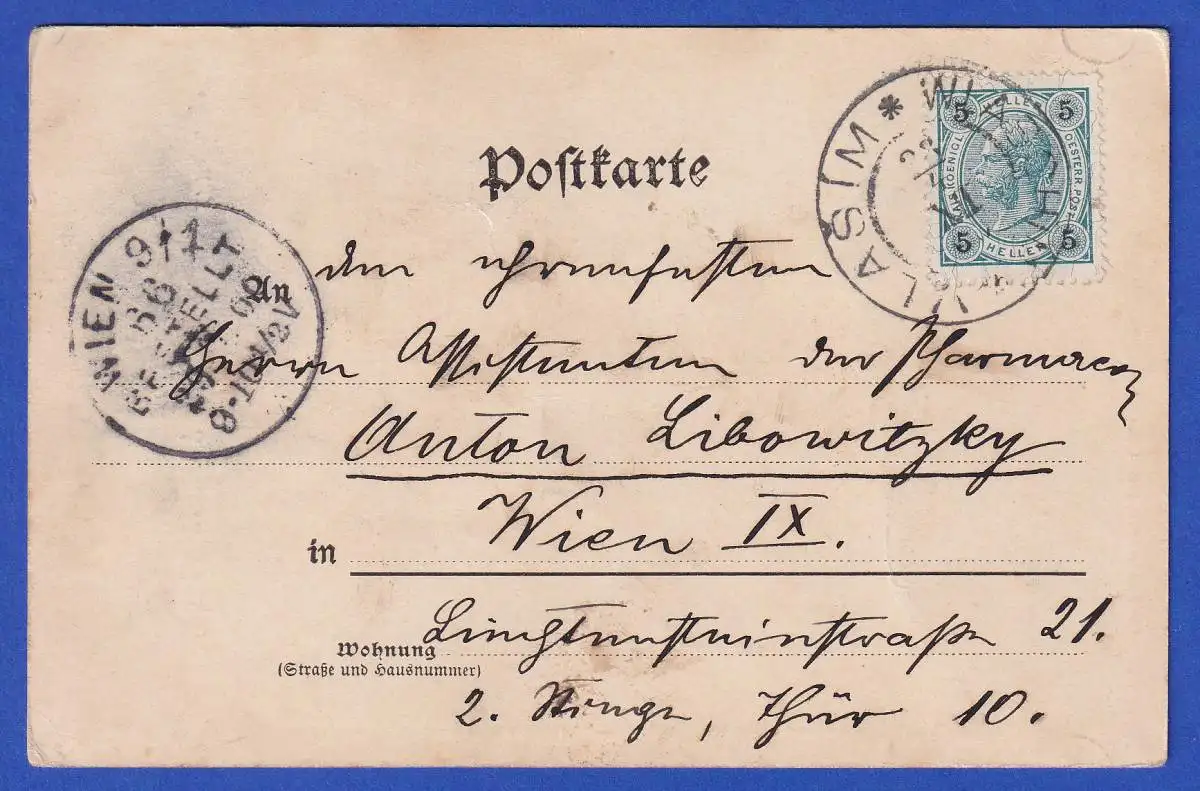 Postkarte
WLASIM * WLAŠIM
5 HELLER 5
KAIS. KOENIGL. OESTERR. POST
5 HELLER 5
WIEN 9/1
66
BESTELLT
8-10½V
An den ehrenfesten
Herrn Assistenten der Pharmacie
Anton Libowitzky
in Wien IX.
Wohnung
(Straße und Hausnummer)
Liechtensteinstraße 21.
2. Stiege, Thür 10.